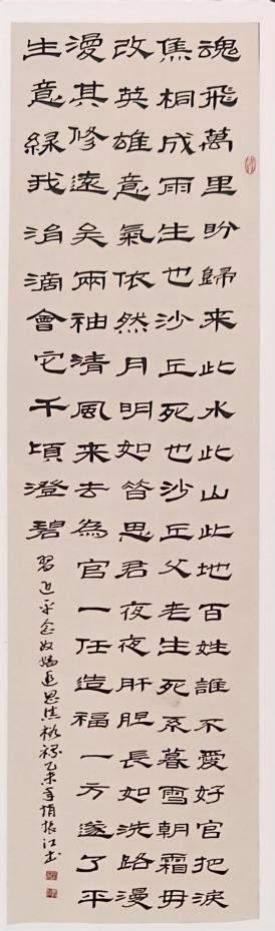 魂飛萬里盼歸来此水此山此地百姓誰不愛好官把淚
焦桐成雨生也沙丘死也沙丘父老生死系暮雪朝霜毋
改英雄意氣依然月明如昔思君夜夜肝胆長如洗路漫
漫其修遠矣兩袖清風来去為官一任造福一方遂了平
生意緑我涓滴會它千頃澄碧
習近平念奴嬌追思焦裕禄乙未年振江书